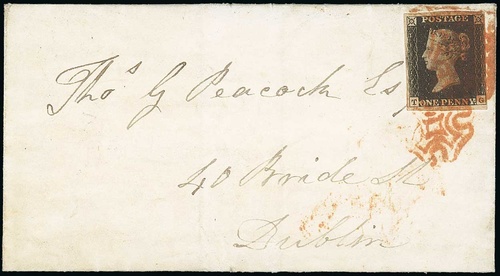 POSTAGE
T G
ONE PENNY
Thos G Peacock Esq
40 Bride St
Dublin